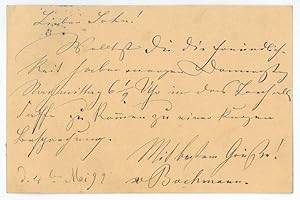 Lieber Sohn!
Wollest Du die Freundlich-
keit haben morgen Donnerstag
Nachmittag 6 1/2 Uhr in das
zu kommen zu einer kurzen
Besprechung.
Mit bestem Gruße!
d. 4 Mai 92 v Bachmann.